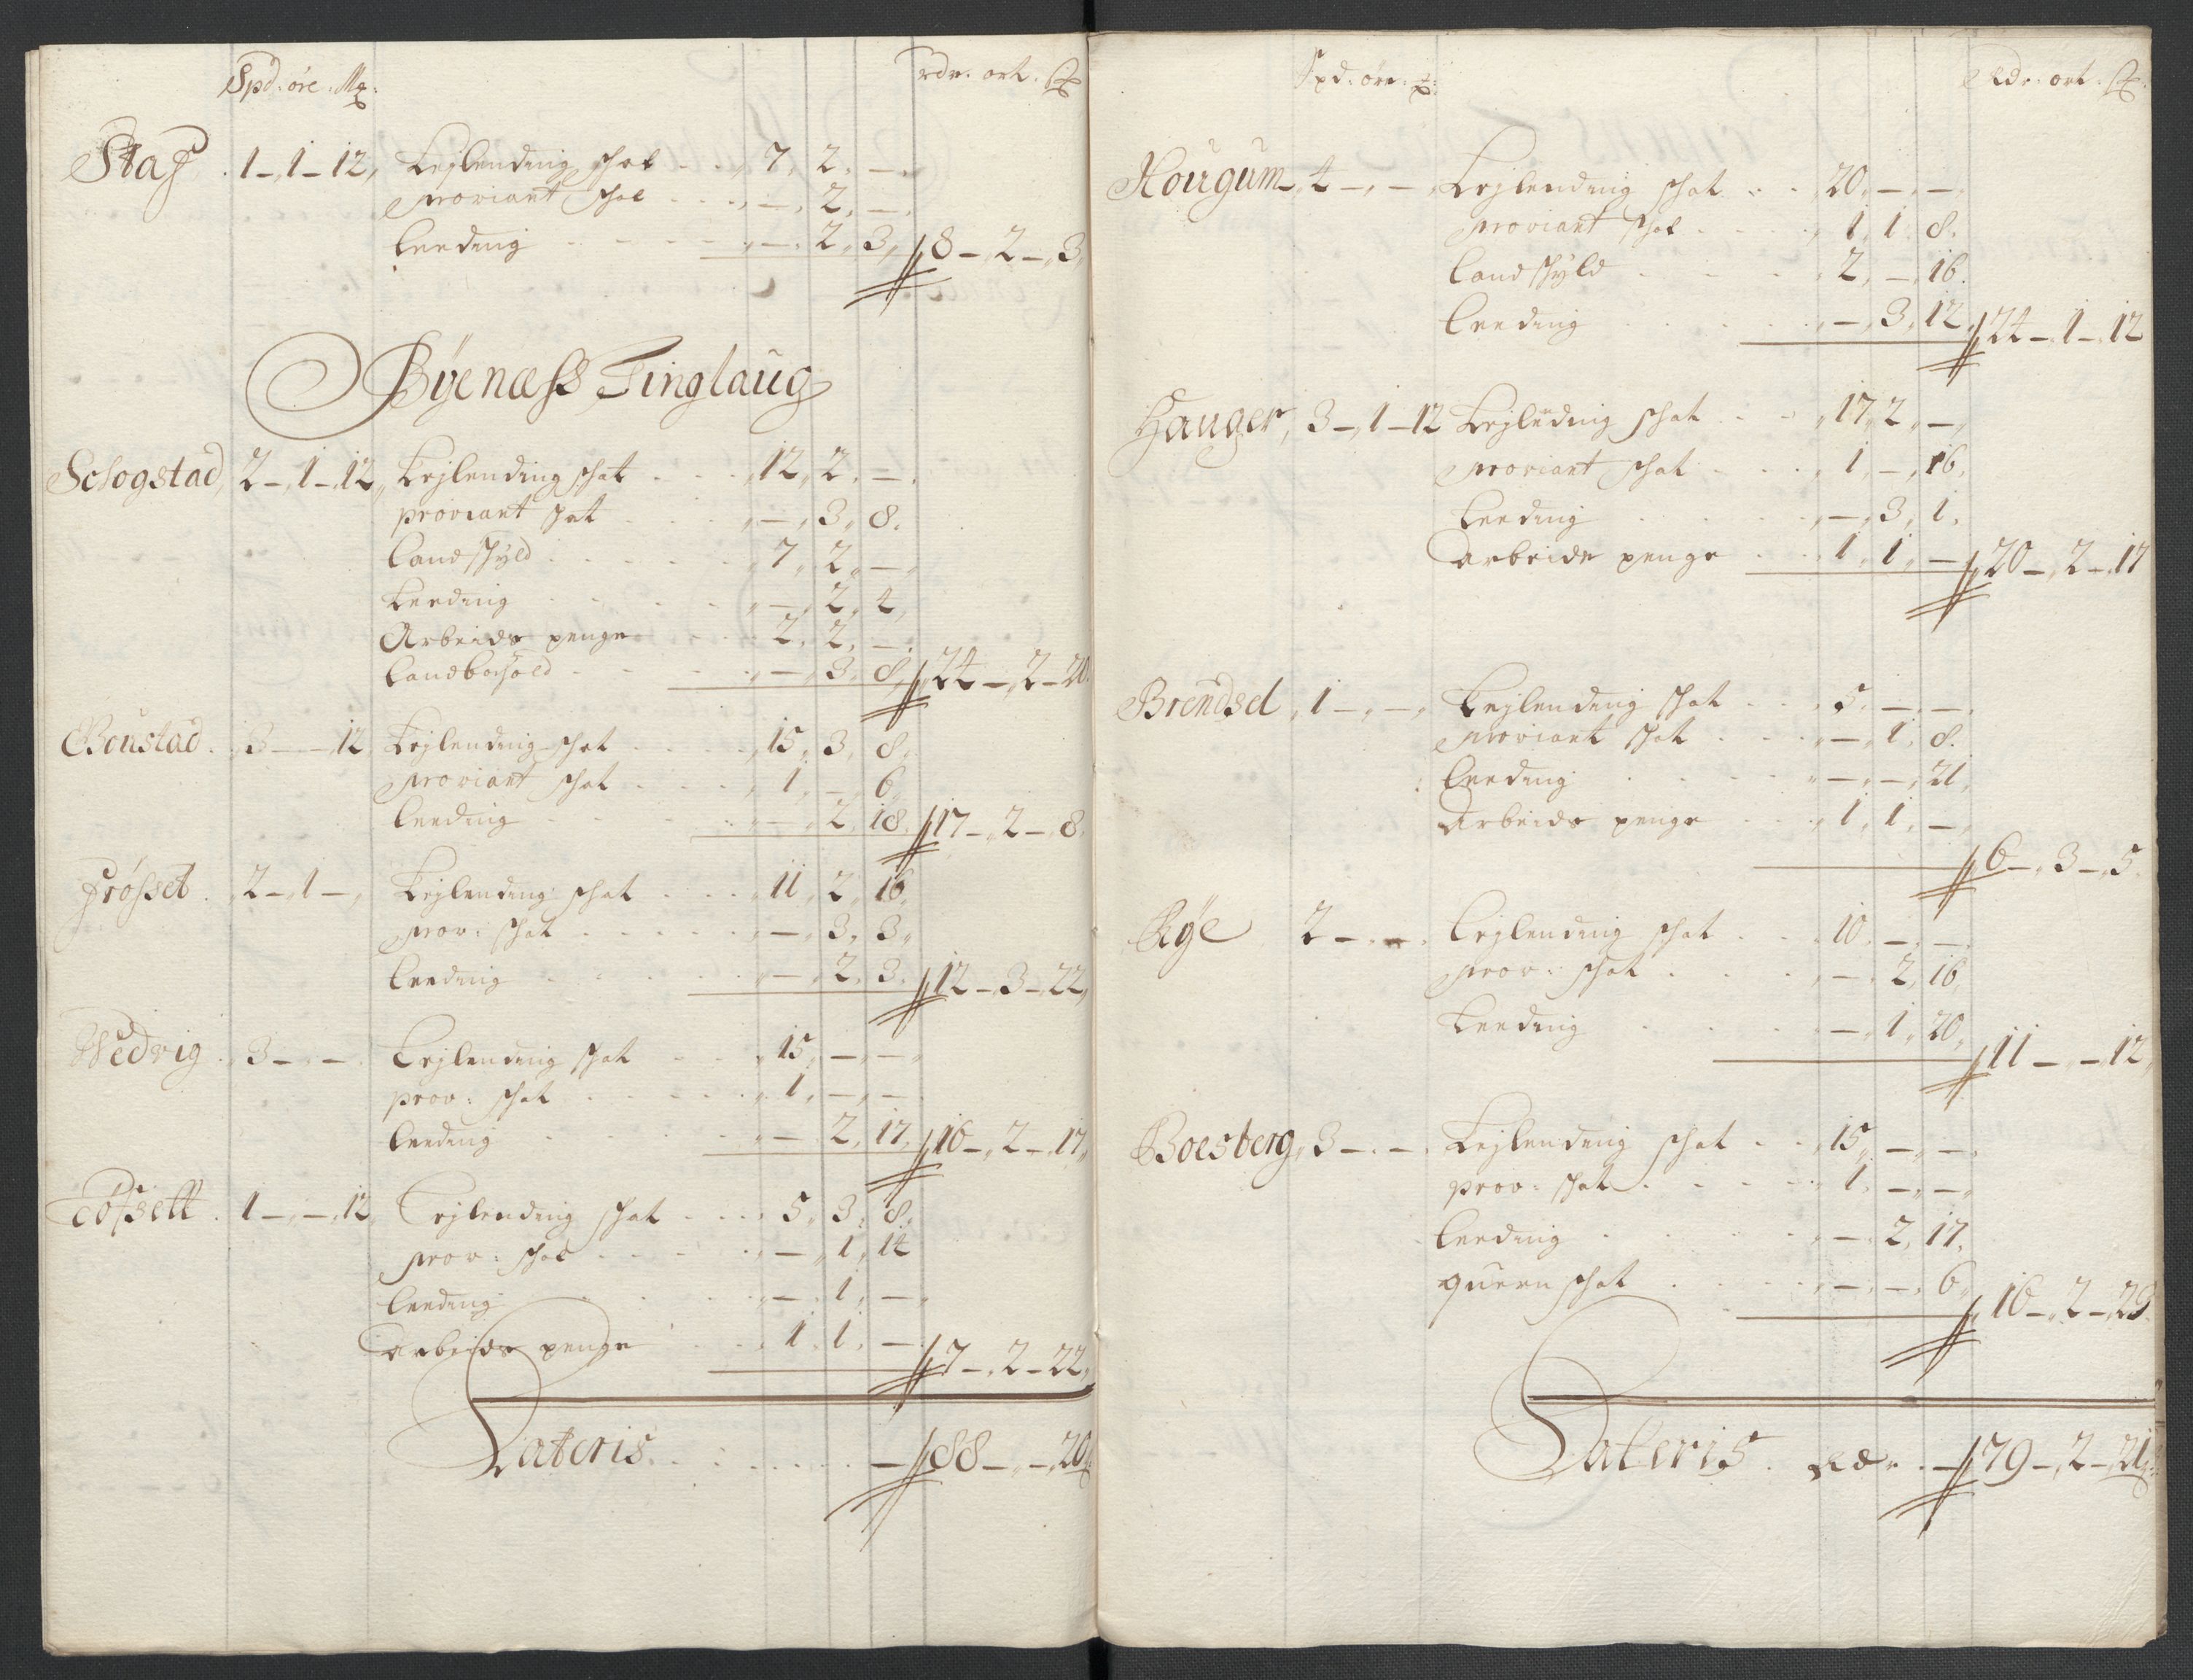 Spd: øre: Mꝝ: rdr: ort: ß
Staf . 1 – 1 – 12, Lejlending schat . . 7, 2, –
proviant schat . . . – , 2, –
Leeding . . . . – , 2, 3, // 8 – 2 – 3
Byenæss Tinglaug
Schogstad, 2 – 1 – 12, Lejlending schat . . . 12, 2, –
proviant schat . . . – , 3, 8.
Landschyld . . . . 7, 2, –
Leeding . . . . – , 2, 4,
Arbeids penge . . . 2, 2, –
Landbohold . . . . – , 3, 8, // 24 – 2 – 20.
Boustad . 3 – – 12, Lejlending schat . . . 15, 3, 8,
proviant schat . . . 1, – , 6,
Leeding . . . . – 2, 18, // 17 – 2 – 8.
Frøsset . 2 – 1 – , Lejlending schat . . . 11, 2, 16,
prov: schat . . . . – , 3, 3,
Leeding . . . . – , 2, 3. // 12 – 3 – 22,
Wedvig . 3 – – Lejlending schat . . . 15, – , –
prov: schat . . . . 1, – , –
Leeding . . . . – 2, 17, // 16 – 2 – 17,
Tøfsett . 1 – – 12, Lejlending schat . . . 5, 3, 8,
prov: schat . . . . – , 1, 14
Leeding . . . . – , 1, –
arbeids penge . . . 1, 1, – // 7 – 2 – 22,
Lateris . . . . . . – // 88 – – 20
Spd: øre: ꝝ: Rdr: ort: ß
Hougum, 4 – , – , Lejlending schat . . 20, – , –
proviant schat . . . . 1, 1, 8.
Landschyld . . . . 2, – , 16.
Leeding . . . . – , 3, 12, // 24 – 1 – 12
Hauger, 3 – 1 – 12 Lejleding schat . . 17, 2, –
proviant schat . . . 1, – , 16,
Leeding . . . . – , 3, 1,
arbeids penge . . . 1, 1, – // 20 – 2 – 17
Brendsel, 1 – , – , Lejlending schat . . . 5, – , –
proviant schat . . . – , 1, 8.
Leeding . . . . – , – , 21,
Arbeids penge . . . 1, 1, –
// 6 – 3 – 5.
Rye . 2 – – . Lejlending schat . . . 10, – , –
prov: schat . . . . – , 2, 16,
Leeding . . . . – , 1, 20,
// 11 – – 12,
Boesberg, 3 – – . Lejlending schat . . 15, – , –
prov: schat . . . . 1, – , –
Leeding . . . . – 2, 17,
quern schat . . . . – , – , 6, // 16 – 2 – 23.
Lateris . Rdr . – // 79 – 2 – 21